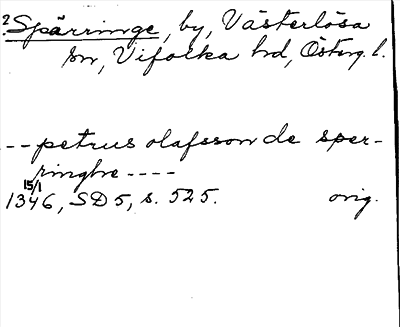 2 Spärringe, by, Västerlösa
sn, Vifolka hd, Österg. l.
-- petrus olafsson de sper-
ringhe ----
15/1
1346, SD 5, s. 525. orig.